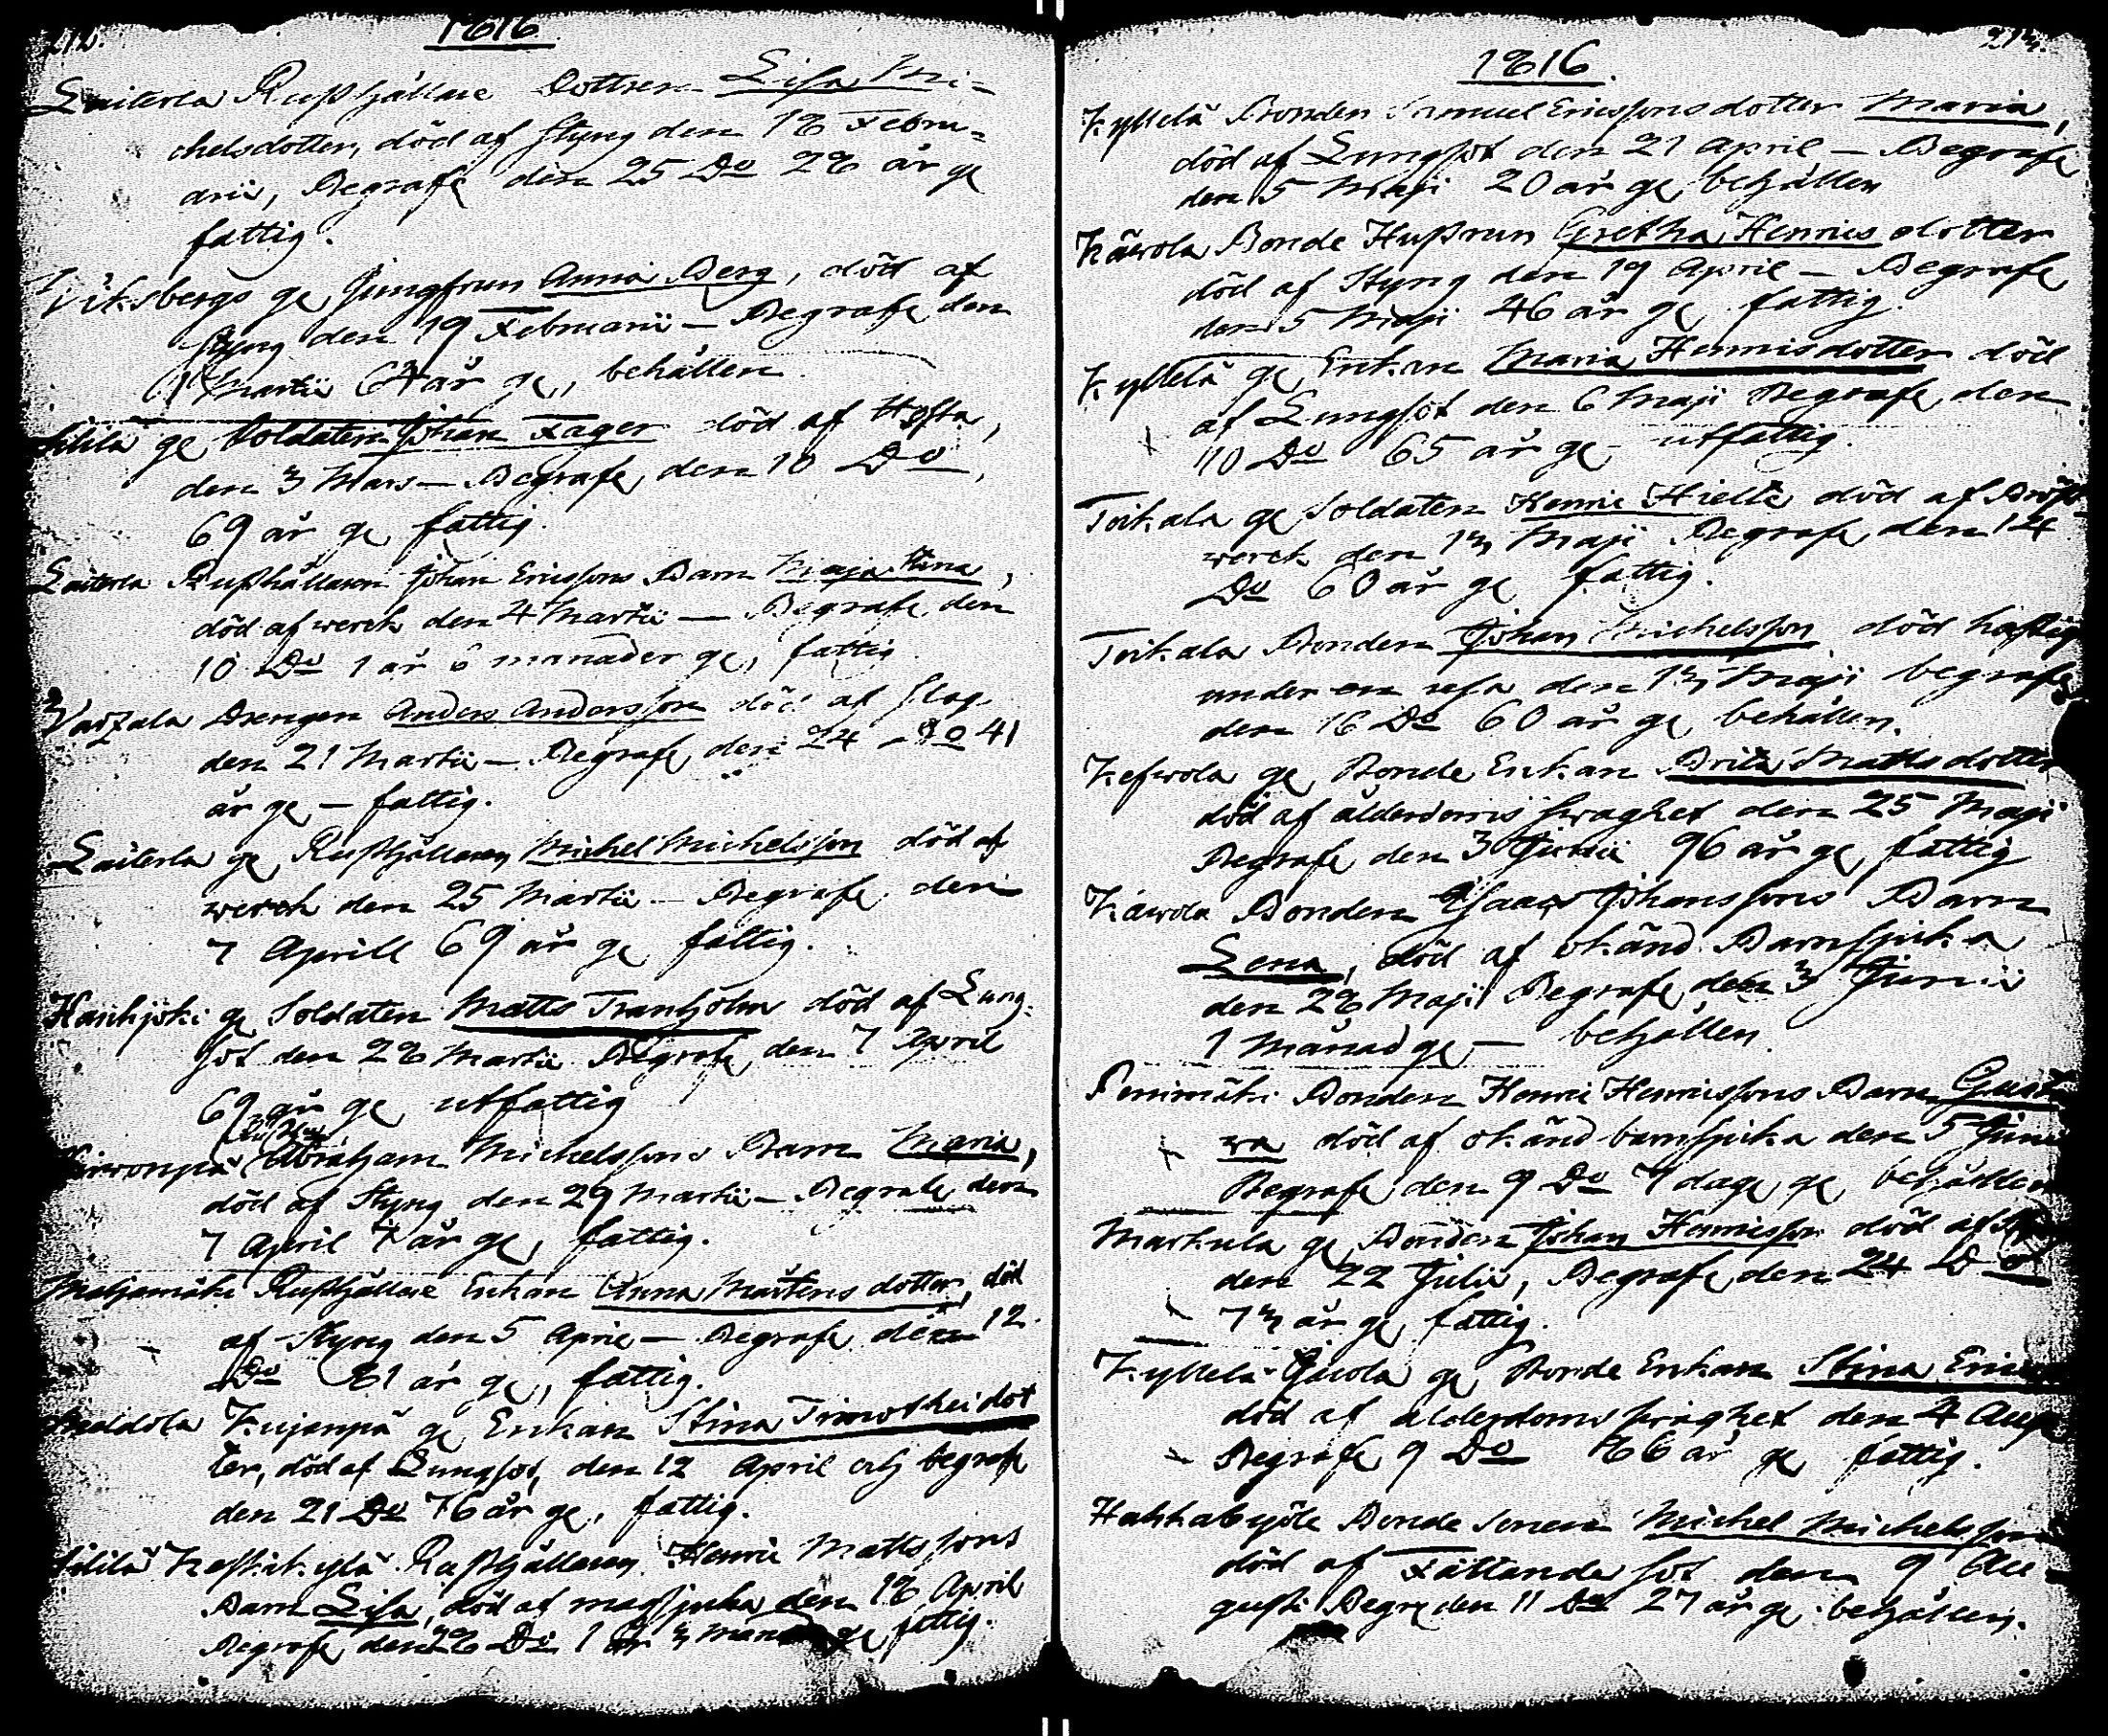 212.
1816
Laiterla Rusthållare Dottren Lisa Mi-
chelsdotter, död af styng den 18 Febru-
arii, Begrafe den 25 Do 28 år ge
fattig.
Wiksbergs ge Jungfrun Anna Berg, död af
styng den 19 Februarii — Begrafe den
Martii 64 år ge, behållen
ge Soldaten Johan Fager död af Hosta,
den 3 Mars — Begrafe, den 10 Do,
69 år ge fattig.
Laiterla Rusthållaren Johan Ericssons Barn Maja Stina,
död af werck den 4 Martii — Begrafe den
10 Do 1 år 6 manader ge, fattig
Drengen Anders Andersson död af slag
den 21 Martii — Begrafe, den 24 Do 41
år ge — fattig.
Laiterla ge Rusthållaren Michel Michelsson död af
werck den 25 Martii — Begrafe den
7 Aprill 69 år ge fattig.
ge Soldaten Matts Tranholm död af Lung-
sot den 28 Martii Begrafe, den 7 April
69 år ge utfattig
Abraham Michelssons Barn Maria,
död af Styng den 29 Martii — Begrafe den
7 April 4 år ge, fattig.
Rusthållare Enkan Anna Mårtens dotter, död
af Styng den 5 April — Begrafe den 12
Do 81 år ge, fattig.
Meldola Kujanpä ge Enkan Stina Timothei dot
ter, död af Lungsot, den 12 April och begrafe
den 21 Do 76 år ge, fattig.
Keskikylä Rusthållaren Henric Mattssons
Barn Lisa, död af massjuka den 18 April
Begrafe, den 28 Do 1 år 3 man ge fattig.
213.
1816.
Kyllelä Bonden Samuel Ericssons dotter Maria,
död af Lungsot den 21 April — Begrafe
den 5 Maji 20 år ge behållen
Käwola Bonde Hustrun Gretha Henrics dotter
död af Styng den 19 April — Begrafe
den 5 Maji 46 år ge, fattig.
Kyllelä ge Enkan Maria Henricsdotter död
af Lungsot den 6 Maji Begrafe, den
10 Do 65 år ge utfattig.
Toikala ge Soldaten Henric Hielte död af Bröst
werck den 13 Maji Begrafe, den 14
Do 60 år ge fattig.
Toikala Bonden Johan Michelsson död hastig
under en resa den 13 Maji begrafe
den 16 Do 60 år ge behållen.
ge Bonde Enkan Brita Matts dotter
död af ålderdoms swaghet den 25 Maji
Begrafe den 3 Junii 96 år ge, fattig
Käwola Bonden Isaac Johanssons Barn
Lena, död af okänd Barnsjuka
den 28 Maji Begrafe, den 3 Junii
1 Månad ge — behållen
Penimäki Bonden Henric Henricssons Barn Gusta
wa död af okänd barnsjuka den 5 Juni
Begrafe den 9 Do 7 dagr ge behållen
Markula ge Bonden Johan Henricsson död af
den 22 Julii, Begrafe, den 24 Do
73 år ge, fattig.
Kyllelä ge Bonde Enkan Stina Erics
död af ålderdoms swaghet den 4 Aug
Begrafe 9 Do 86 år ge fattig.
Bonde sonen Michel Michelsson
död af Fallande sot den 9 Au-
gusti Begr den 11 Do 27 år ge behållen.